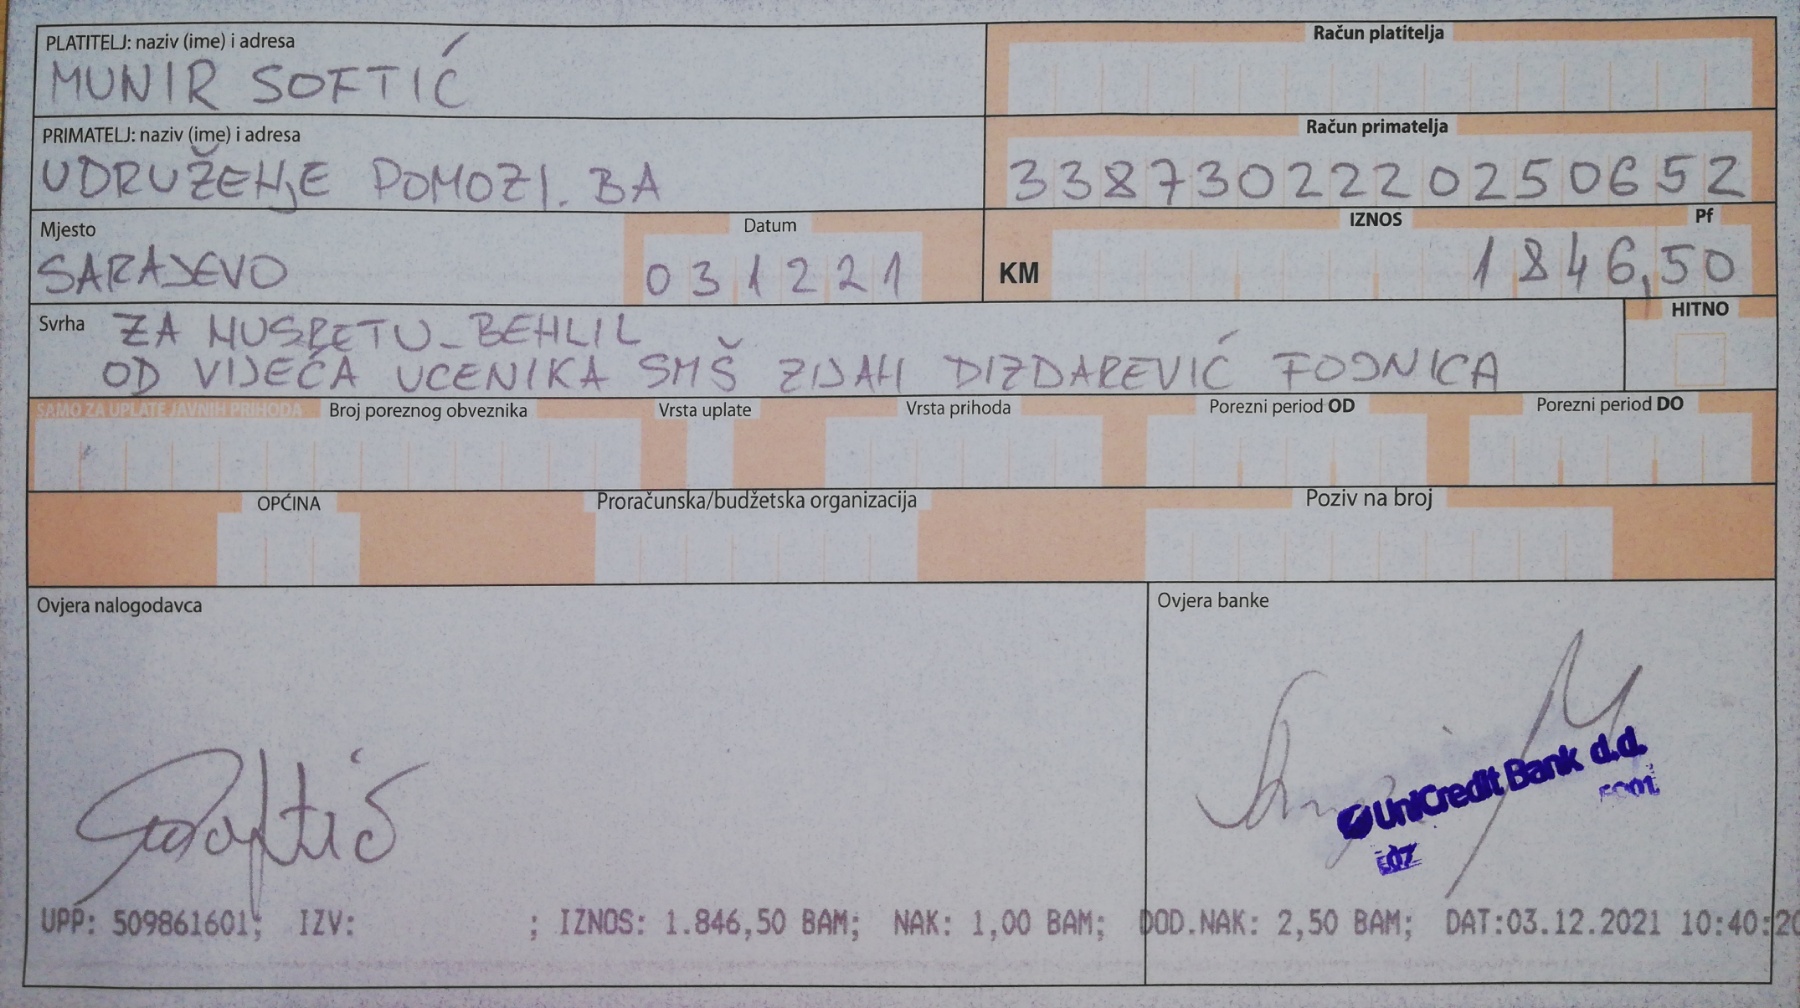 PLATITELJ: naziv (ime) i adresa
MUNIR SOFTIĆ
Račun platitelja
PRIMATELJ: naziv (ime) i adresa
UDRUŽENJE POMOZI.BA
Račun primatelja
3387302220250652
Mjesto
SARAJEVO
Datum
031221
IZNOS
Pf
KM
1846,50
Svrha
ZA NUSRETU-BEHLIL
OD VIJEĆA UCENIKA SMŠ ZIJAH DIZDAREVIĆ FOJNICA
HITNO
SAMO ZA UPLATE JAVNIH PRIHODA
Broj poreznog obveznika
Vrsta uplate
Vrsta prihoda
Porezni period OD
Porezni period DO
OPĆINA
Proračunska/budžetska organizacija
Poziv na broj
Ovjera nalogodavca
Softić
Ovjera banke
UniCredit Bank d.d.
UPP: 509861601; IZV: ; IZNOS: 1.846,50 BAM; NAK: 1,00 BAM; DOD.NAK: 2,50 BAM; DAT:03.12.2021 10:40:20